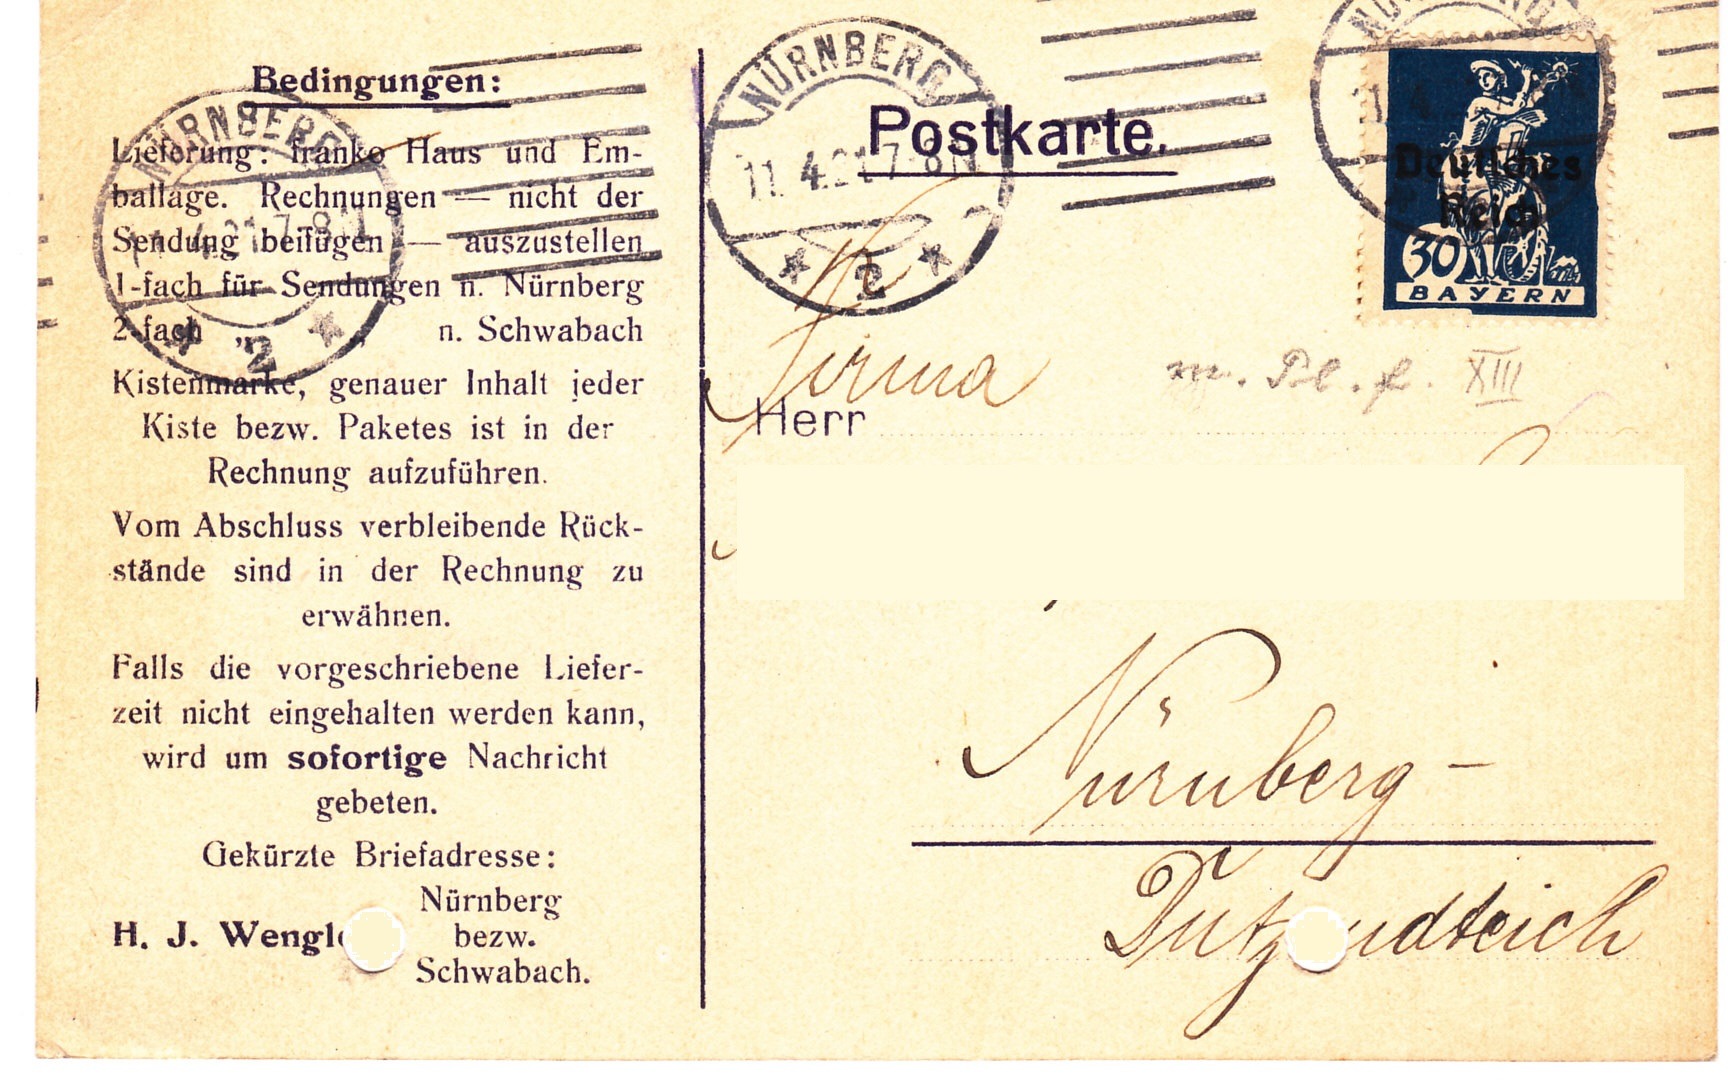 Bedingungen:
Lieferung: franko Haus und Em-
ballage. Rechnungen — nicht der
Sendung beifügen — auszustellen
1-fach für Sendungen n. Nürnberg
2-fach „ „ n. Schwabach
Kistenmarke, genauer Inhalt jeder
Kiste bezw. Paketes ist in der
Rechnung aufzuführen.
Vom Abschluss verbleibende Rück-
stände sind in der Rechnung zu
erwähnen.
Falls die vorgeschriebene Liefer-
zeit nicht eingehalten werden kann,
wird um sofortige Nachricht
gebeten.
Gekürzte Briefadresse:
Nürnberg
H. J. Wengl bezw.
Schwabach.
NÜRNBERG
11.4.21 7-8 N
2
NÜRNBERG
11.4.21 7-8 N
* 2 *
NÜRNBERG
Postkarte.
Deutsches
Reich
30
BAYERN
Firma
m. Pl. f. XIII
Herr
Nürnberg-
Dutzendteich